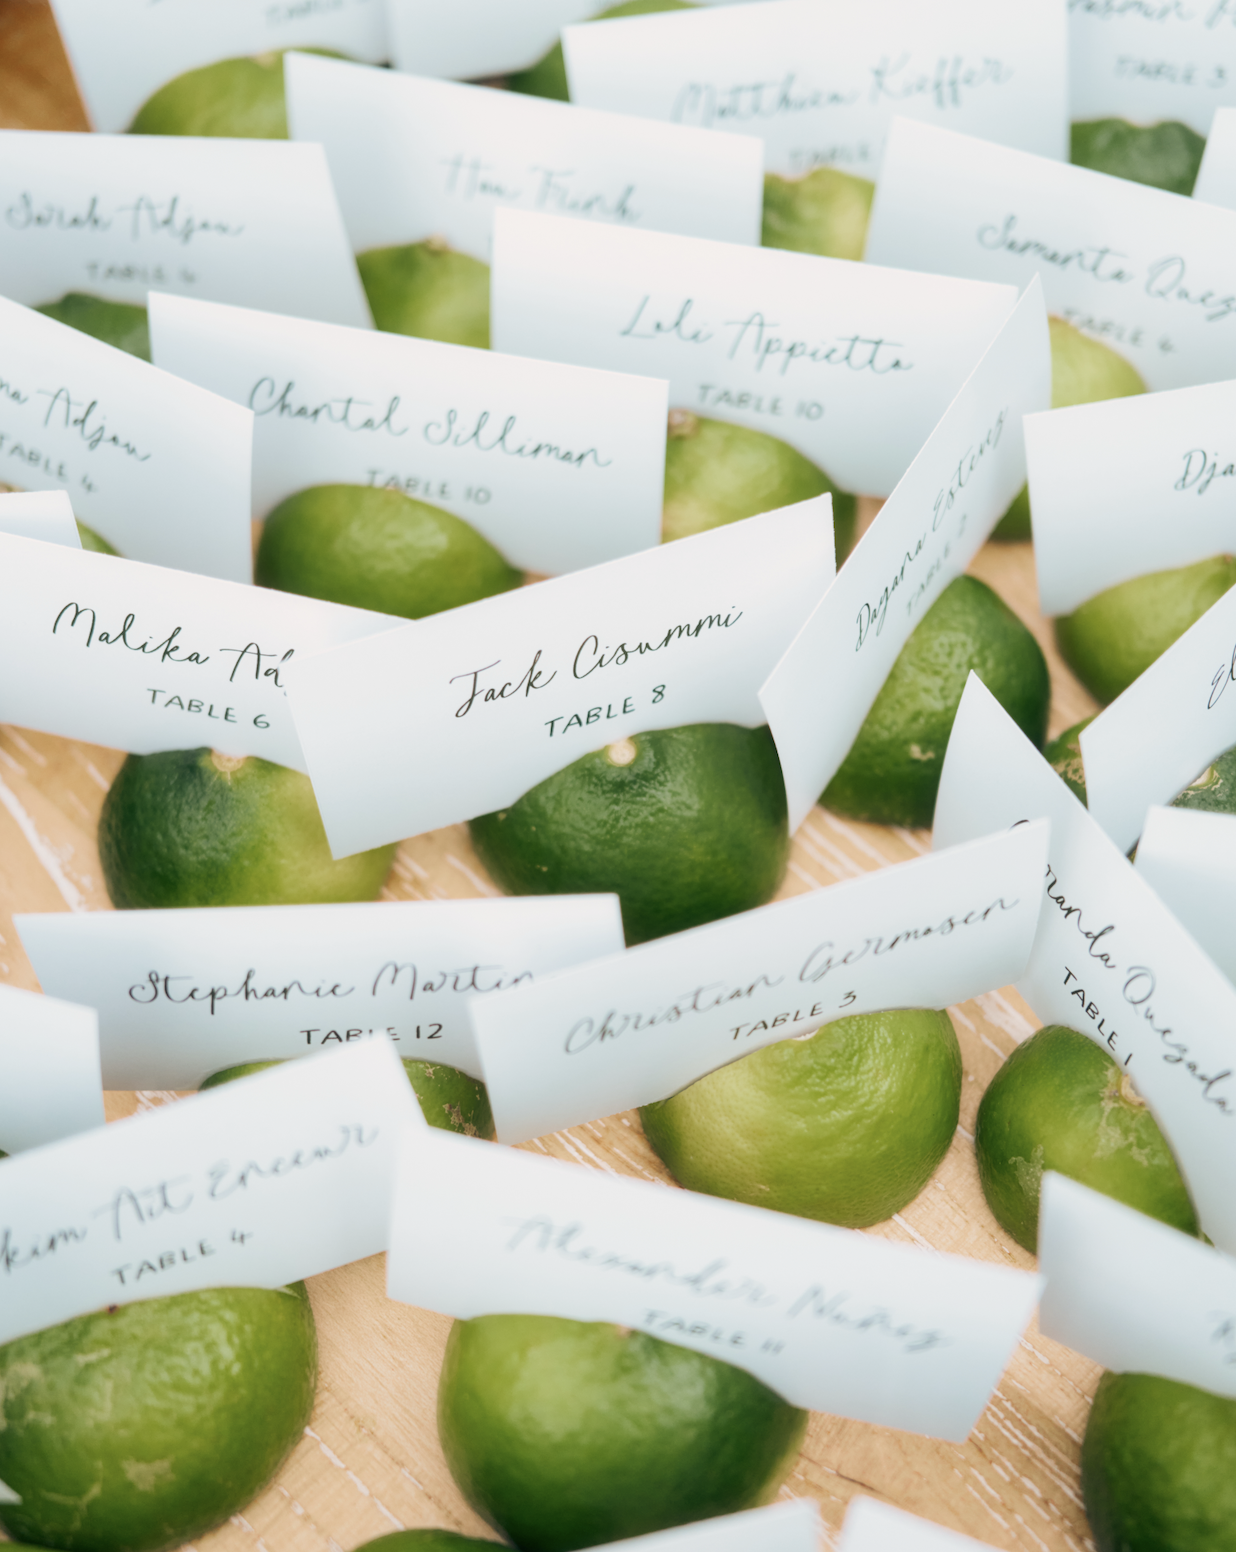 TABLE 3
Matthieu Kieffer
TABLE
Sarah Adjou
TABLE 4
Samanta Quez
TABLE 4
Loli Appietto
TABLE 10
Chantal Silliman
TABLE 10
Adjou
TABLE 4
Dayana Estevez
TABLE
Dja
Malika Ad
TABLE 6
Jack Cisummi
TABLE 8
El
Stephanie Martin
TABLE 12
Christian Germosen
TABLE 3
manda Quezada
TABLE 1
kim Ait
TABLE 4
Alexander Nuñez
TABLE 11